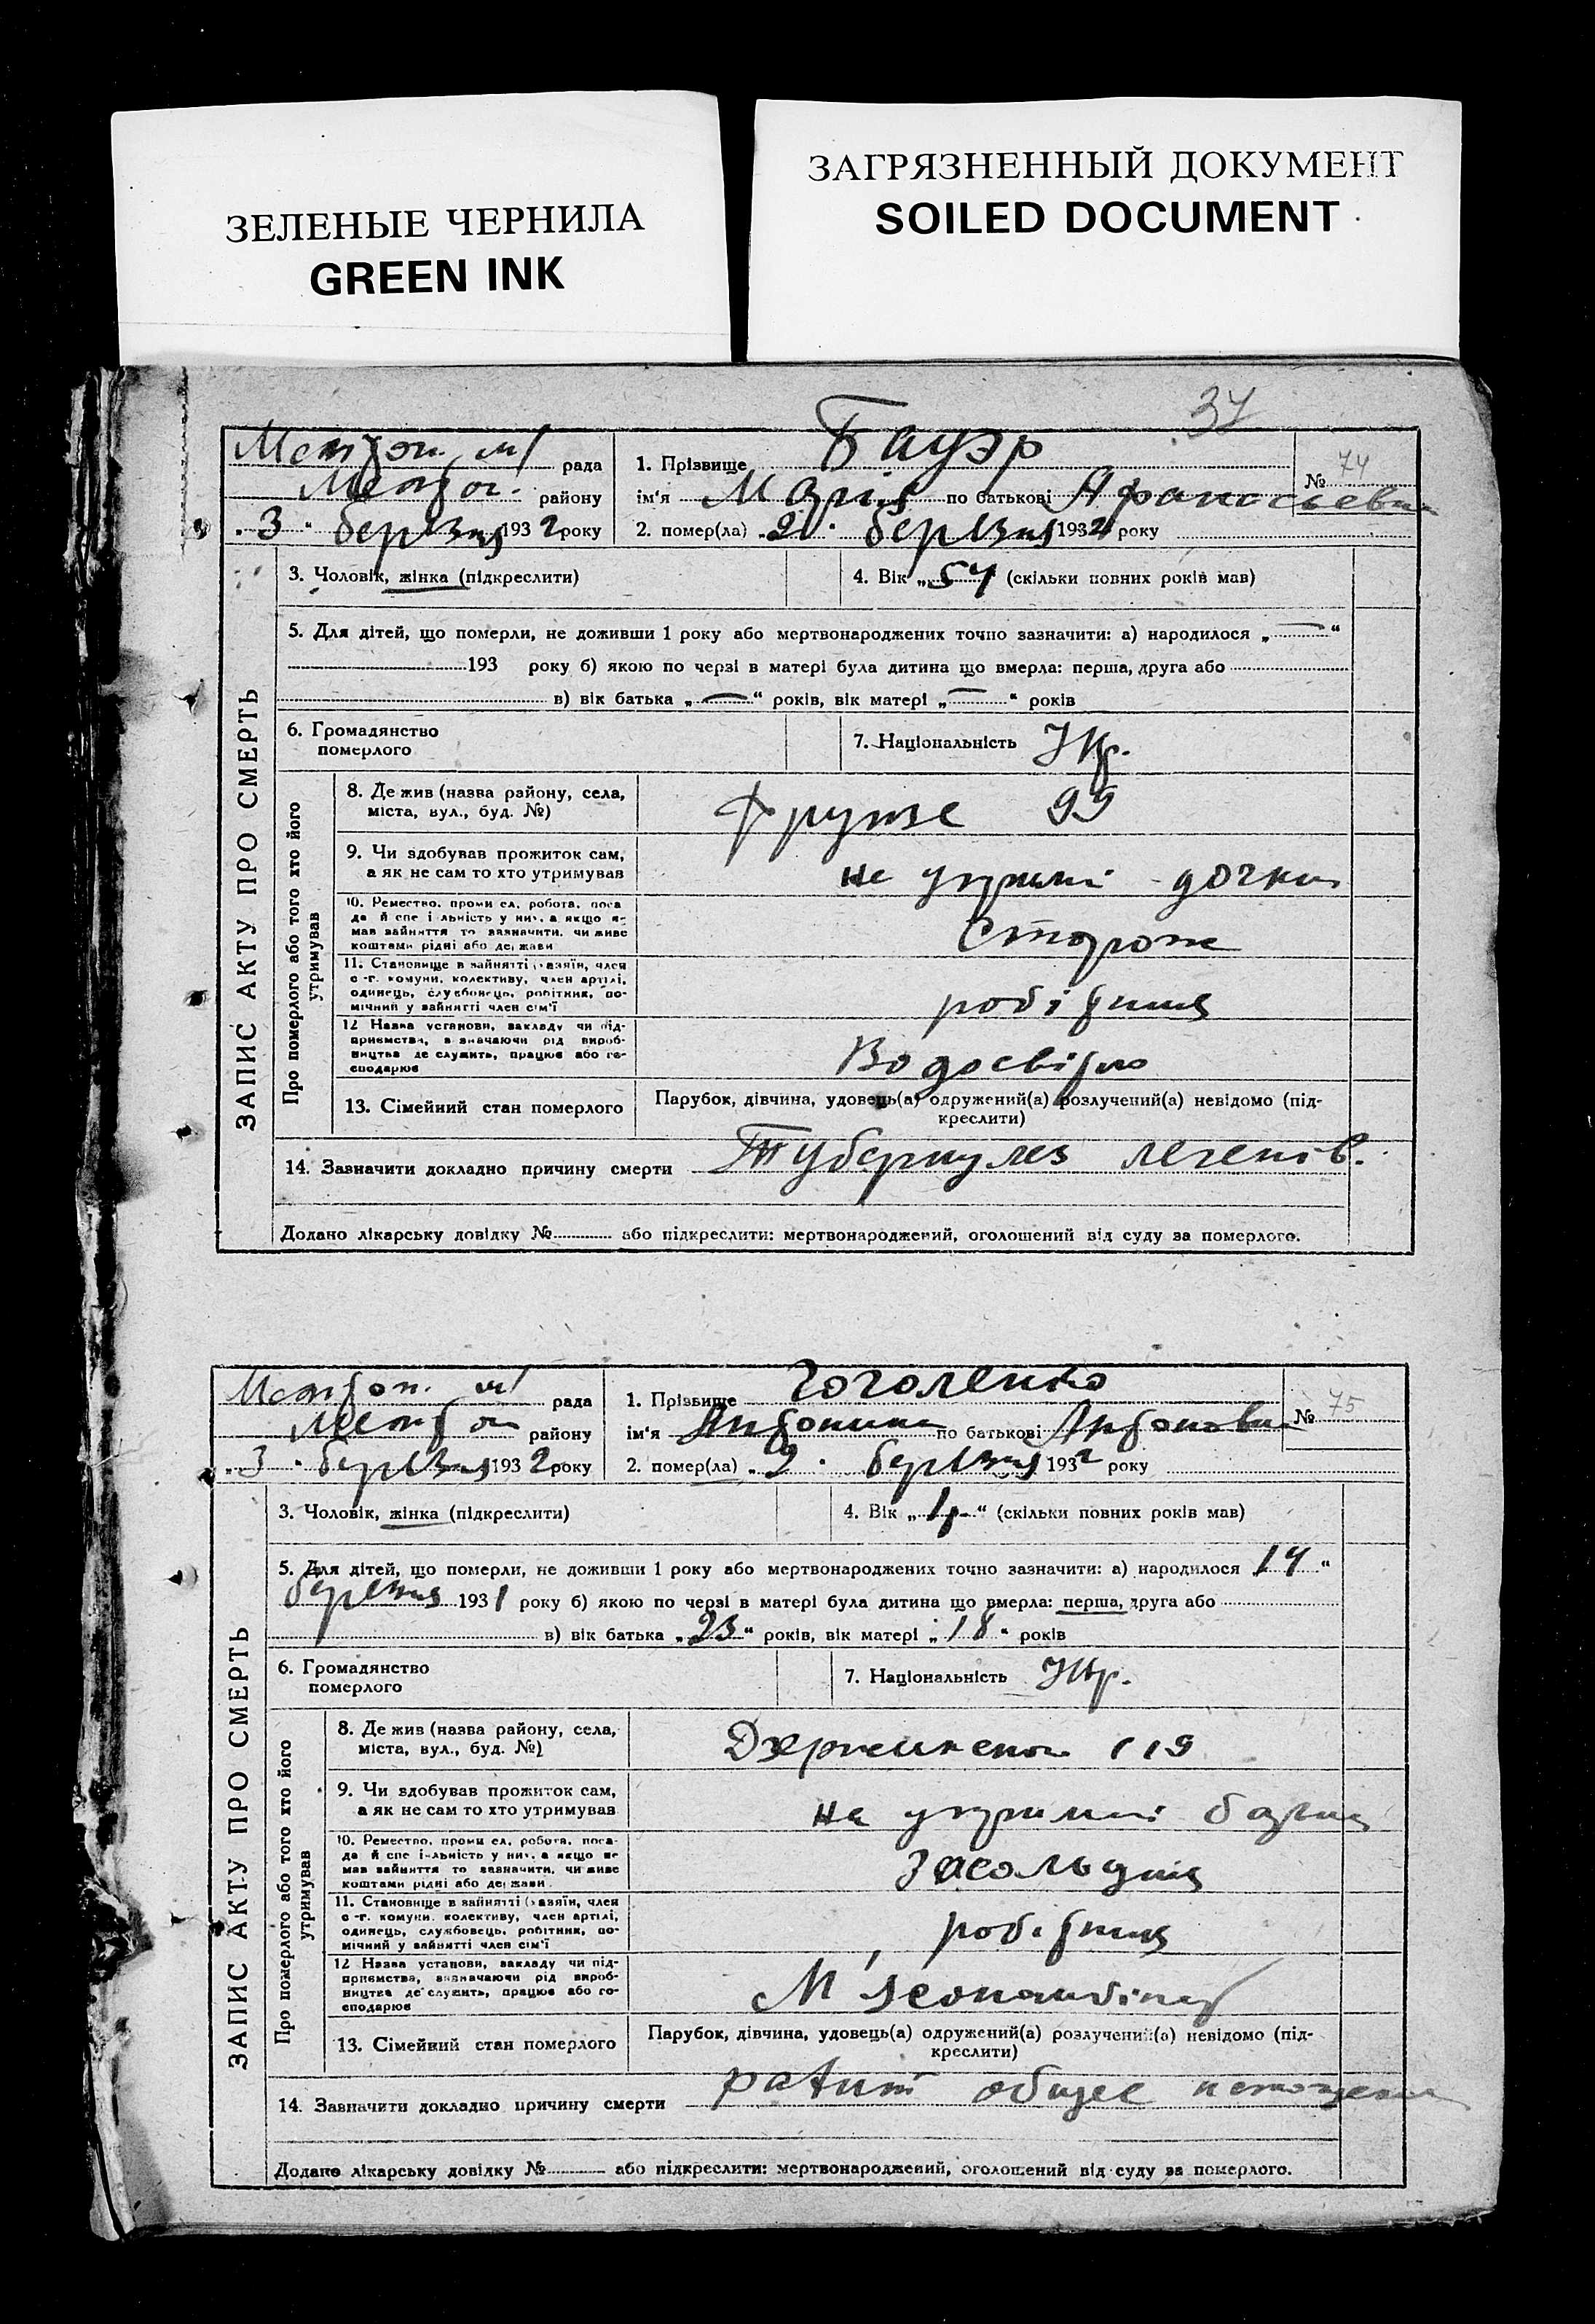 ЗЕЛЕНЫЕ ЧЕРНИЛА
GREEN INK
ЗАГРЯЗНЕННЫЙ ДОКУМЕНТ
SOILED DOCUMENT
37
рада
району
"3" березня 1932 року
1. Прізвище Бауэр
№ 74
ім'я Марія по батькові Афанасьевна
2. помер(ла) "2" березня 1932 року
ЗАПИС АКТУ ПРО СМЕРТЬ
3. Чоловік, жінка (підкреслити)
4. Вік "54" (скільки повних років мав)
5. Для дітей, що померли, не доживши 1 року або мертвонароджених точно зазначити: а) народилося „—“
193 року б) якою по черзі в матері була дитина що вмерла: перша, друга або
в) вік батька „—“ років, вік матері „—“ років
6. Громадянство померлого
7. Національність Укр.
Про померлого або того хто його утримував
8. Де жив (назва району, села,
міста, вул., буд. №)
Фрунзе 99
9. Чи здобував прожиток сам,
а як не сам то хто утримував
на утримні дочки
10. Ремество, промисел, робота, поса
да й спеціальність у них, а якщо не
мав зайняття то зазначити, чи живе
коштами рідні або держави
Сторож
11. Становище в зайнятті (хазяїн, член
с.-г. комуни, колективу, член артілі,
одинець, службовець, робітник, по-
мічний у зайнятті член сім'ї
робітниця
12 Назва установи, закладу чи під-
приємства, зазначаючи рід вироб-
ництва де служить, працює або го-
сподарює
Водосвітло
13. Сімейний стан померлого
Парубок, дівчина, удовець(а) одружений(а) розлучений(а) невідомо (під-
креслити)
14. Зазначити докладно причину смерти Туберкулез легенів.
Додано лікарську довідку № або підкреслити: мертвонароджений, оголошений від суду за померлого.
рада
району
"3" березня 1932 року
1. Прізвище Гоголенко
№ 75
ім'я Антонина по батькові Антоновна
2. помер(ла) "2" березня 1932 року
ЗАПИС АКТУ ПРО СМЕРТЬ
3. Чоловік, жінка (підкреслити)
4. Вік (скільки повних років мав)
5. Для дітей, що померли, не доживши 1 року або мертвонароджених точно зазначити: а) народилося 14 "
березня 1931 року б) якою по черзі в матері була дитина що вмерла: перша, друга або
в) вік батька „23“ років, вік матері „18“ років
6. Громадянство померлого
7. Національність Укр.
Про померлого або того хто його утримував
8. Де жив (назва району, села,
міста, вул., буд. №)
119
9. Чи здобував прожиток сам,
а як не сам то хто утримував
на утримні батька
10. Ремество, промисел, робота, поса-
да й спеціальність у них, а якщо не
мав зайняття то зазначити, чи живе
коштами рідні або держави
11. Становище в зайнятті (хазяїн, член
с.-г. комуни, колективу, член артілі,
одинець, службовець, робітник, по-
мічний у зайнятті член сім'ї
робітниця
12 Назва установи, закладу чи під-
приємства, зазначаючи рід вироб-
ництва де служить, працює або го-
сподарює
М'ясокомбінат
13. Сімейний стан померлого
Парубок, дівчина, удовець(а) одружений(а) розлучений(а) невідомо (під-
креслити)
14. Зазначити докладно причину смерти рахит общее истощение
Додано лікарську довідку № або підкреслити: мертвонароджений, оголошений від суду за померлого.